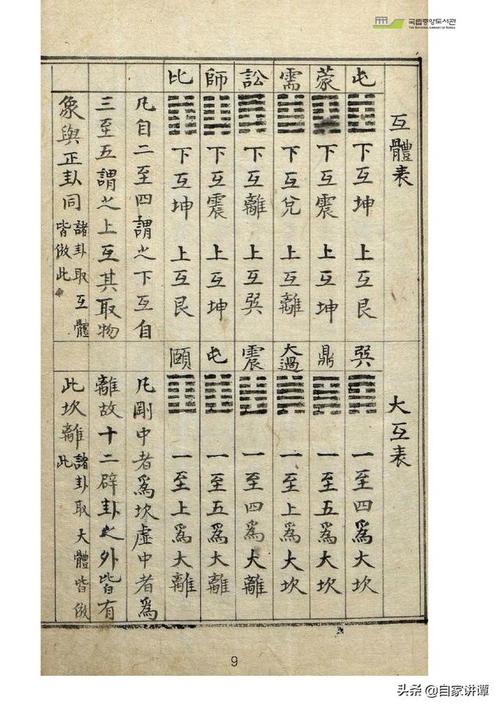 국립중앙도서관
THE NATIONAL LIBRARY OF KOREA
互體表
屯 下互坤 上互艮
蒙 下互震 上互坤
需 下互兌 上互離
訟 下互離 上互巽
師 下互震 上互坤
比 下互坤 上互艮
凡自二至四謂之下互自
三至五謂之上互其取物
象與正卦同 諸卦取互體
皆倣此
大互表
巽 一至四爲大坎
鼎 一至五爲大坎
大過 一至上爲大坎
震 一至四爲大離
屯 一至五爲大離
頤 一至上爲大離
凡剛中者爲坎虛中者爲
離故十二辟卦之外皆有
此坎離 諸卦取大體皆倣
此
9
头条 @自家讲谭